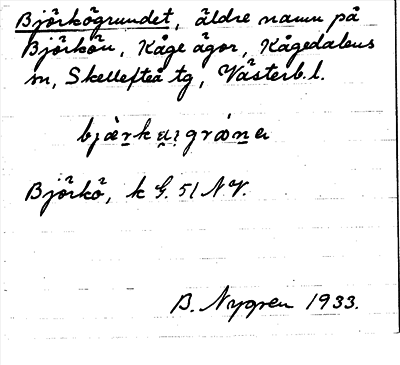 Björkögrundet, äldre namn på
Björkön, Kåge ägor, Kågedalens
sn, Skellefteå tg, Västerb.l.
Björkö, k G. 51 N V.
B. Nygren 1933.